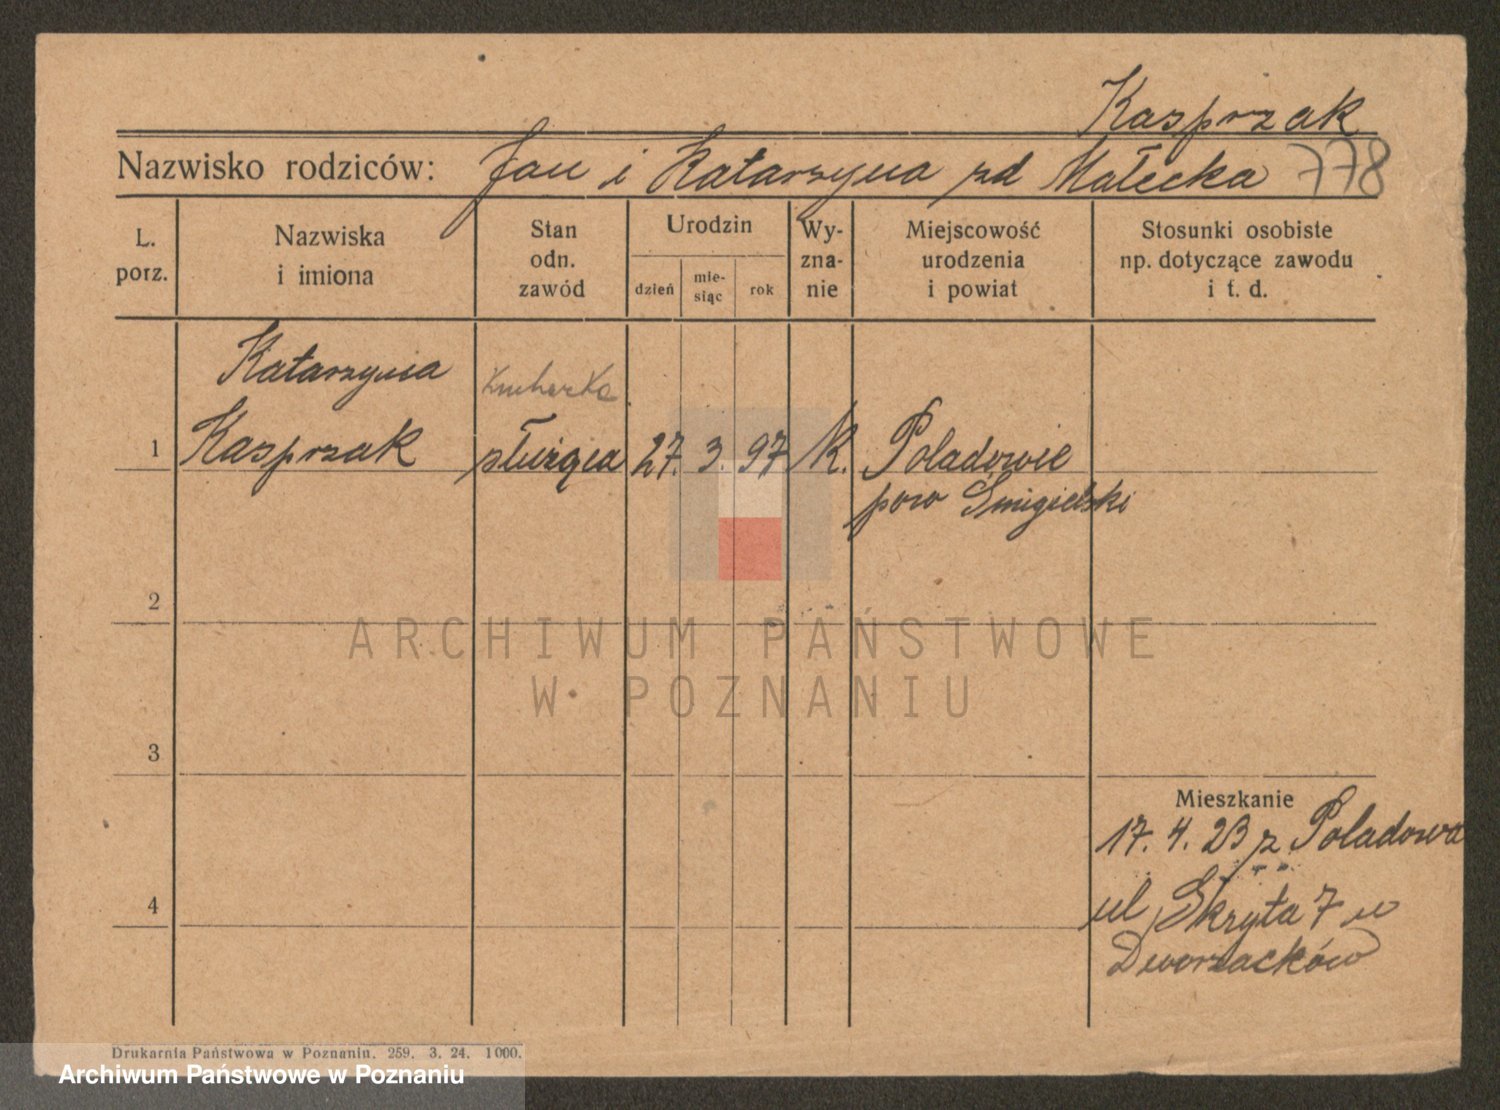 Kasprzak
Nazwisko rodziców: Jan i Katarzyna zd Małecka 778
L. porz.
Nazwiska i imiona
Stan odn. zawód
Urodzin
dzień
mie-
siąc
rok
Wy-
zna-
nie
Miejscowość urodzenia i powiat
Stosunki osobiste np. dotyczące zawodu i t. d.
Katarzyna
Kucharka
1 Kasprzak służąca 27. 3. 97 k. Poladowie
pow Śmigielski
2
ARCHIWUM PAŃSTWOWE
W POZNANIU
3
Mieszkanie
17. 4. 23 z Poladowa
4
ul Skryta 7 u
Dworzacków
Drukarnia Państwowa w Poznaniu. 259. 3. 24. 1000.
Archiwum Państwowe w Poznaniu